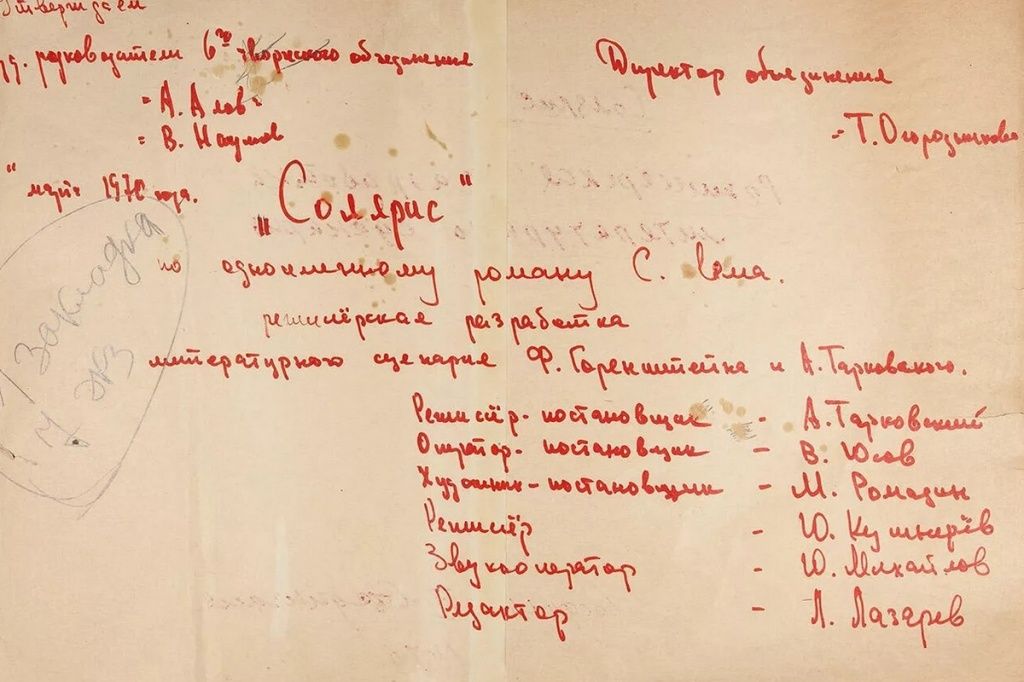 Утверждаем
худ. руководители 6го творческого объединения
= А. Алов =
= В. Наумов
Директор объединения
= Т. Огородникова
" март 1970 года.
„Солярис"
по одноименному роману С. Лема.
режиссёрская разработка
литературного сценария Ф. Горенштейна и А. Тарковского.
Режиссёр-постановщик - А. Тарковский
Оператор-постановщик - В. Юсов
Художник-постановщик - М. Ромадин
Режиссёр - Ю. Кушнерёв
Звукооператор - Ю. Михайлов
Редактор - Л. Лазарев
Закладка
у экз